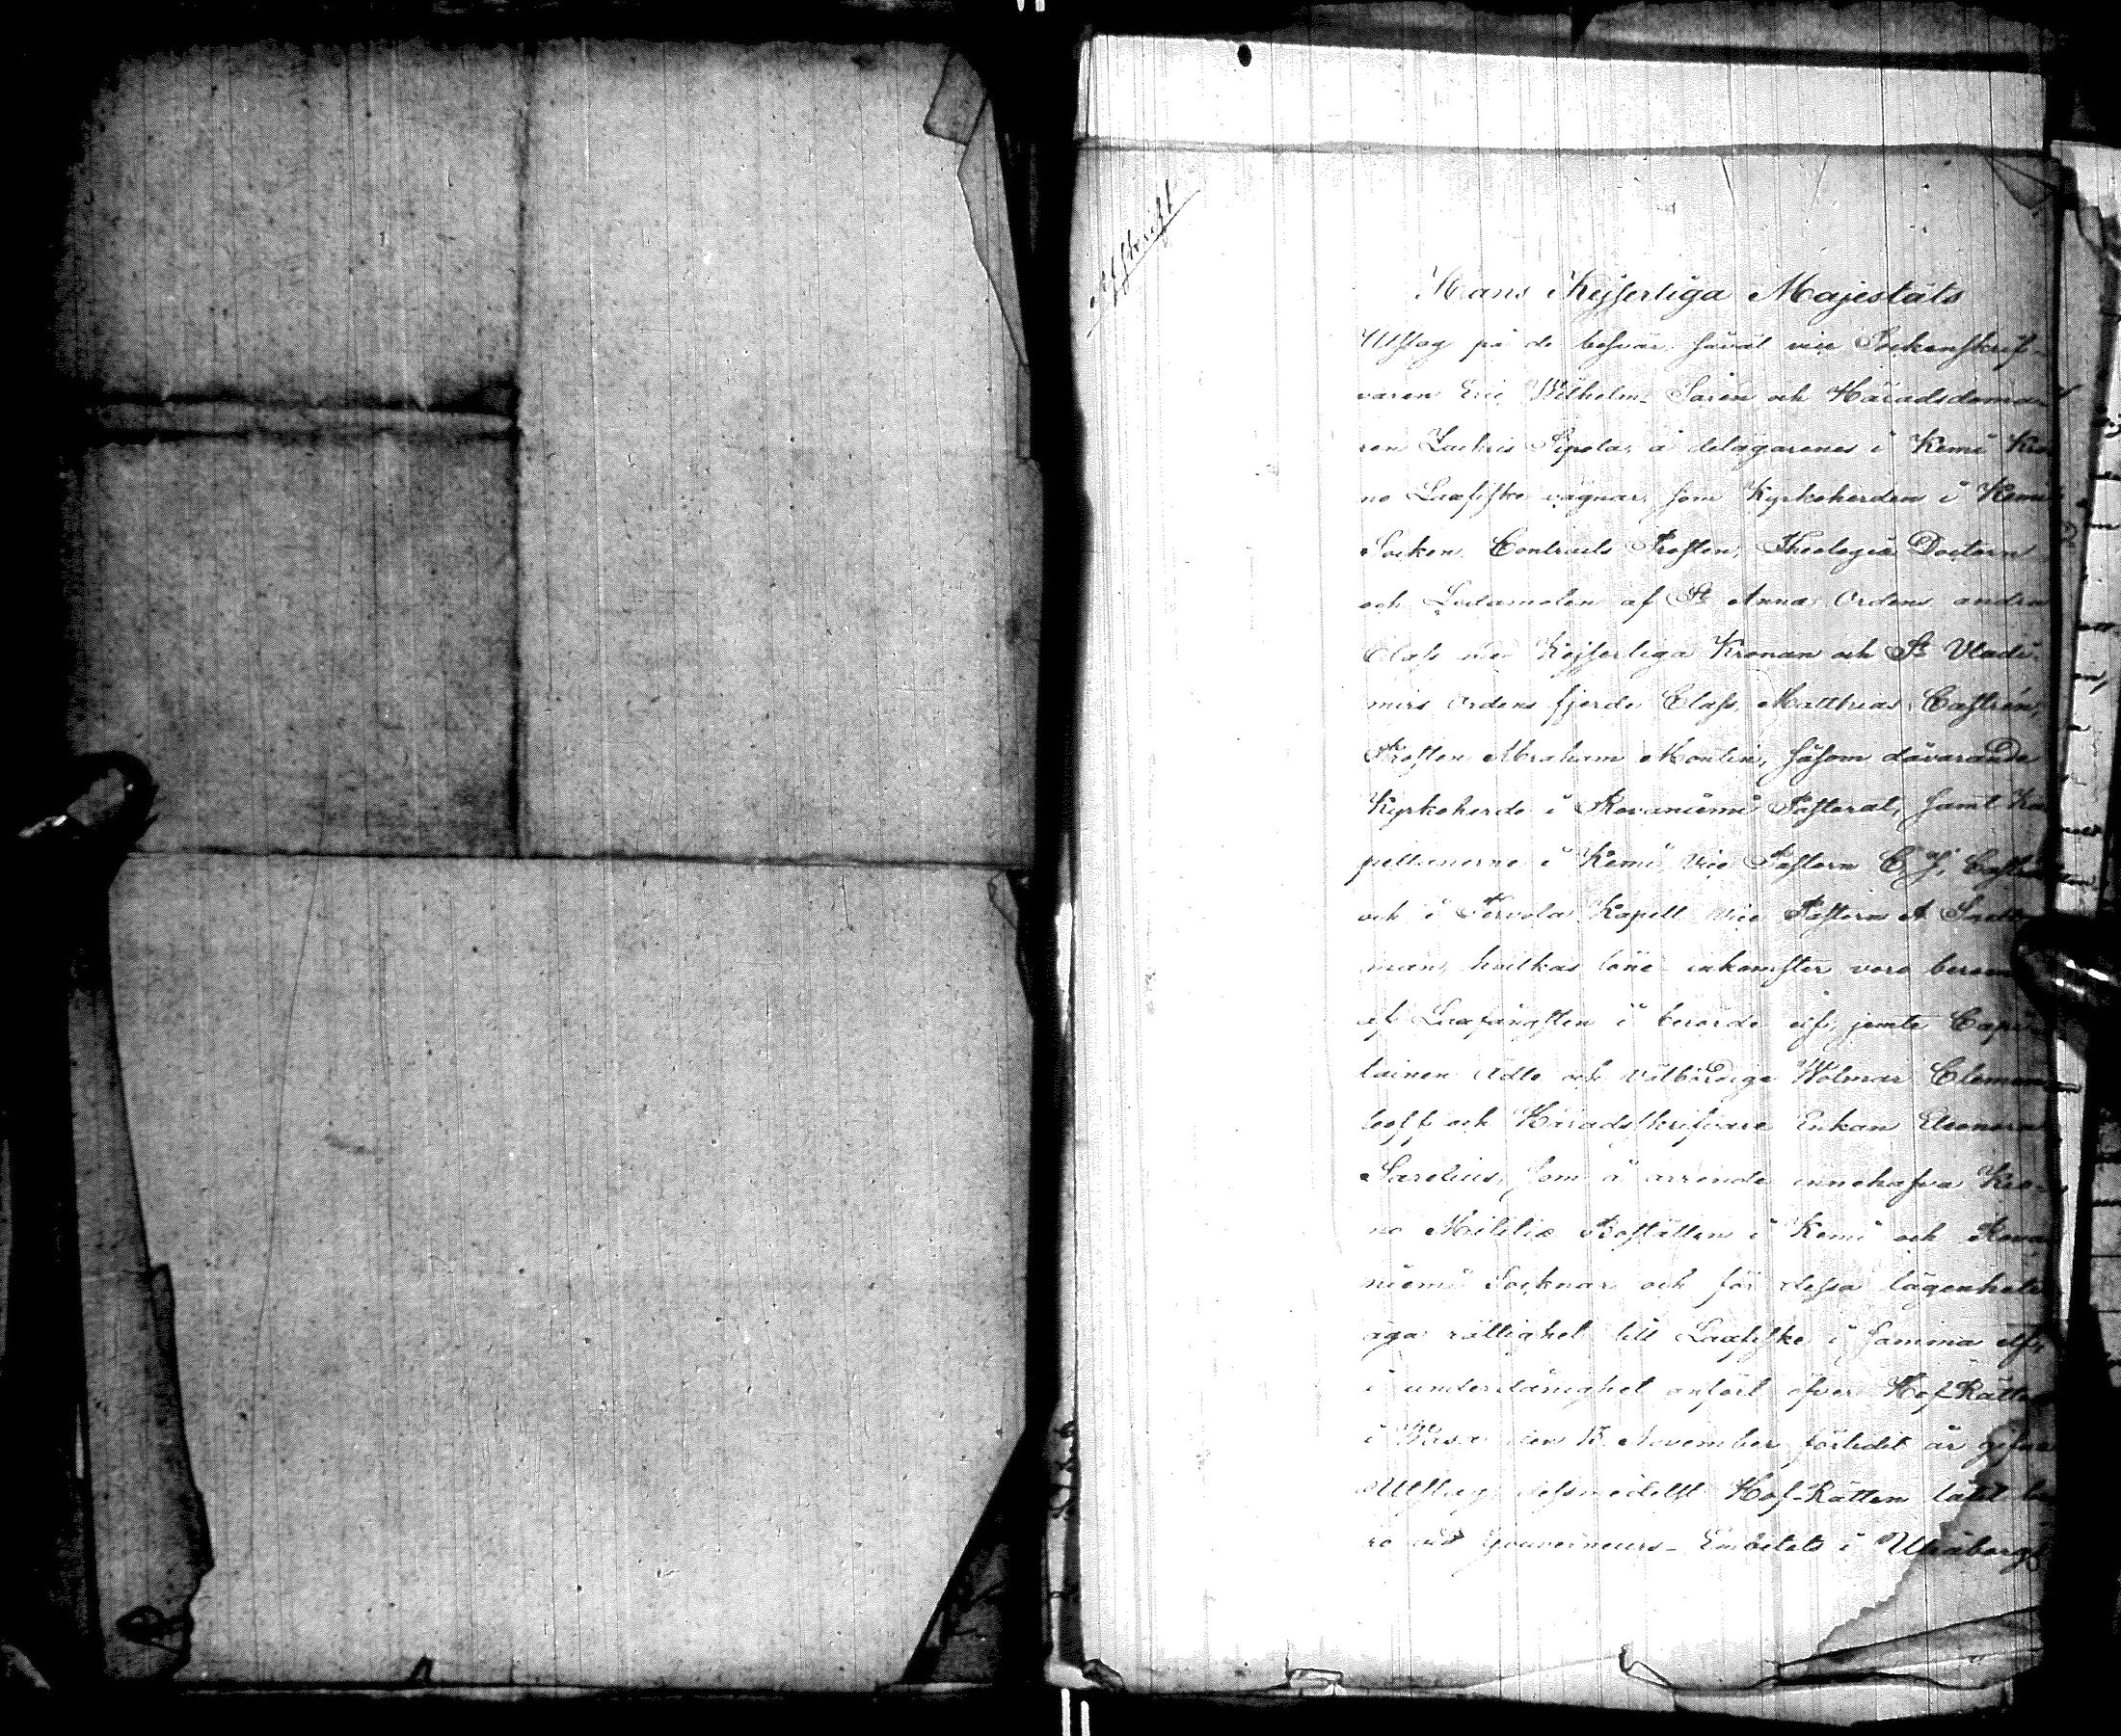 Afskrift
Hans Kejserliga Majestäts
Utslag på de besvär såväl vice Sockenskrif-
varen Eric Wilhelm Sarén och Häradsdoma-
ren Zachris Sipola, å delägarenes i Kemi Kro-
no Laxfiske vägnar, som Kyrkoherden i Kemi
Socken Contracts Prosten, Theologiæ Doctorn
och Ledamoten af St Anna Ordens andra
Class med Kejserliga Kronan och St Vladi-
mirs Ordens fjerde Class, Matthias Castrén,
Prosten Abraham Montin, såsom dåvarande
Kyrkoherde i Rovaniemi Pastorat, samt Ka
pellanerne i Kemi vice Pastorn E. J. Castrén
och i Tervola Kapell vice Pastorn A
man, hvilkas löne inkomster voro
af Laxfångsten i berörde elf, jemte Capi-
tainen Ädle och Välbördige Wolmar Clemen
teoff och Häradsskrifvare Enkan Eleonora
Sarelius, som å arrende innehafva Kro-
no Militiæ Boställen i Kemi och Rova-
niemi Socknar och för dessa lägenheter
äga rättighet till Laxfiske i samma elf,
i underdånighet anfört öfver Hof-Rättens
i Wasa den 15 November förledit år gifne
Utslag, dessmedelst Hof-Rätten låtit be
ro vid Gouverneurs-Embetets i Uleåborgs